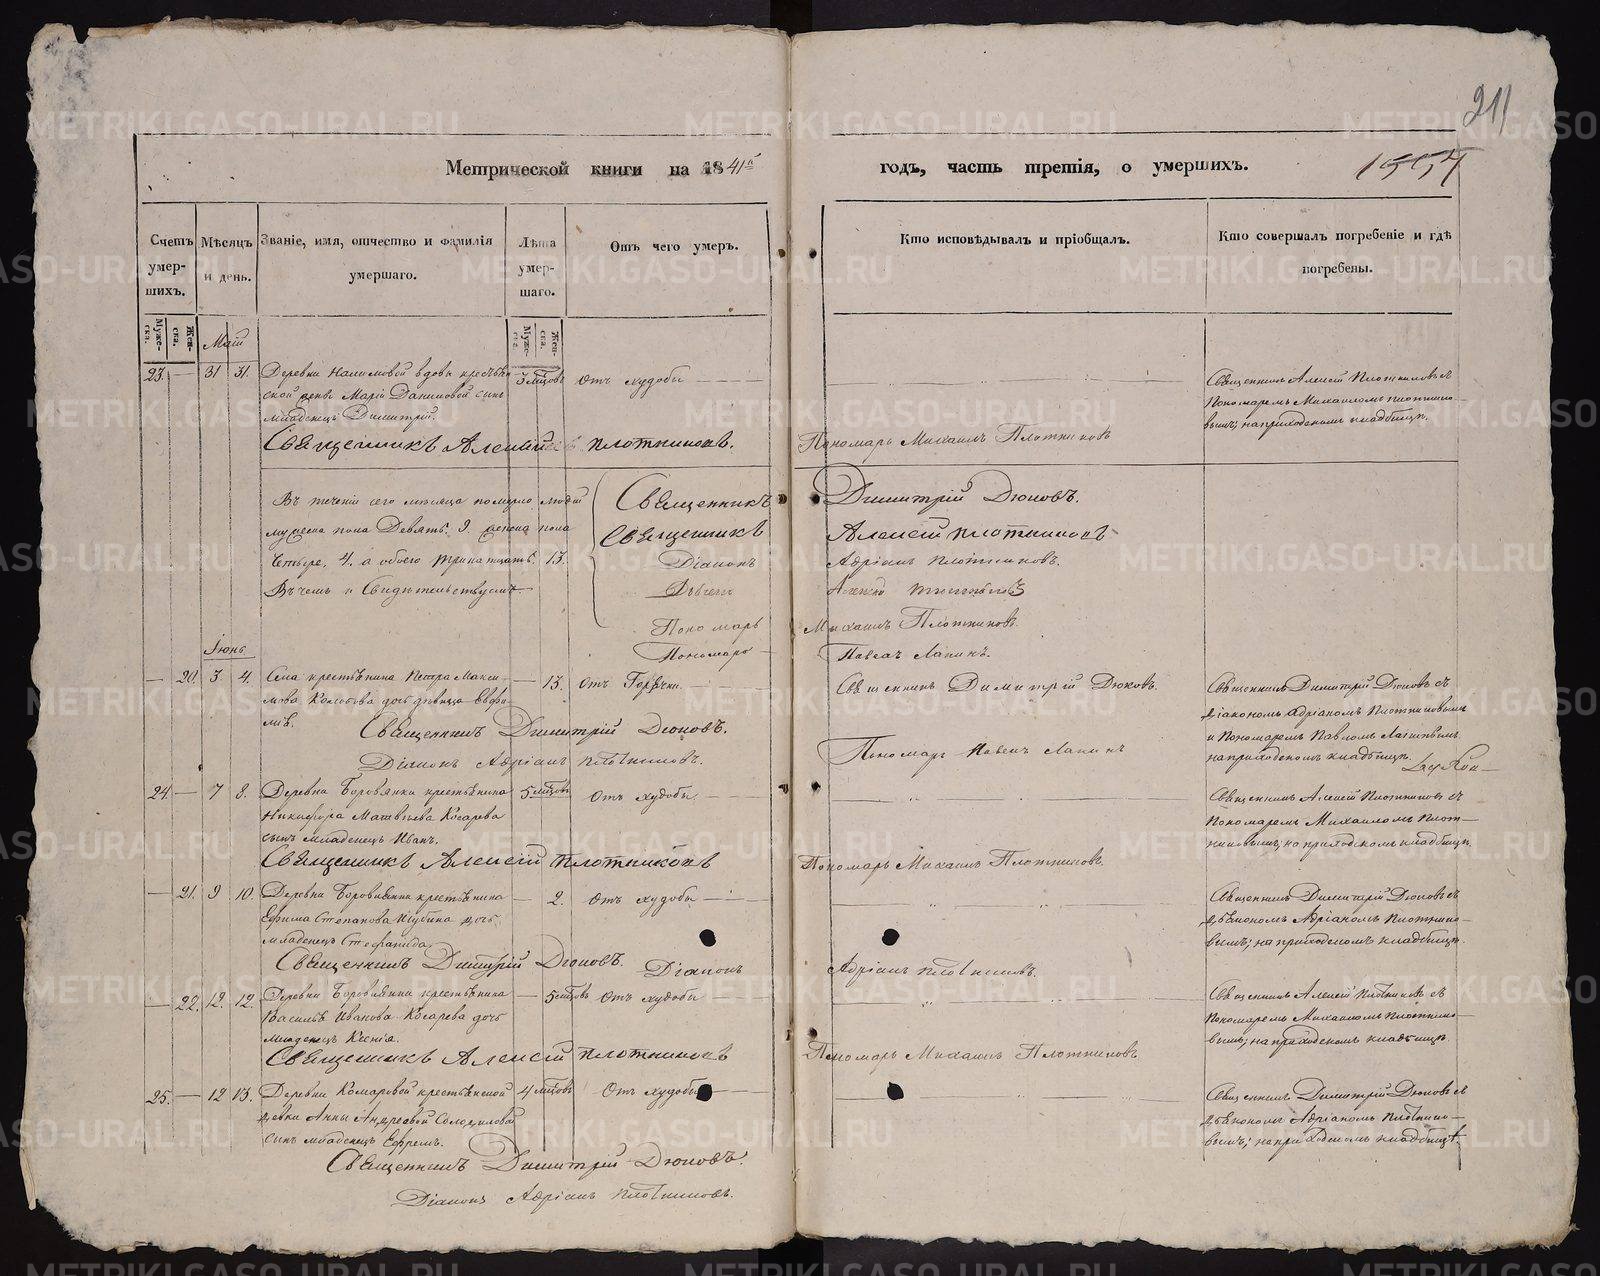 211
Метрической книги на 1841й годъ, часть третія, о умершихъ.
1557
Счетъ умер-шихъ.
Мѣсяцъ и день.
Званіе, имя, отчество и фамилія умершаго.
Лѣта умер-шаго.
Отъ чего умеръ.
Кто исповѣдывалъ и пріобщалъ.
Кто совершалъ погребеніе и гдѣ погребены.
Муже-ска.
Жен-ска.
Муже-ска.
Жен-ска.
Маій
23. — 31 31. Деревни вдовы крестьян
ской Маріи Даниловой сынъ
младенецъ Димитрій.
3 мѣсцовъ
Отъ худобы
Священникъ Алексій Плотниковъ съ
Пономаремъ Михаиломъ Плотнико-
вымъ; на приходскомъ кладбищѣ.
Священникъ Алексій Плотниковъ.
Пономарь Михаилъ Плотниковъ
Въ теченіи сего мѣсяца померло людей
мужеска пола Девять. 9. женска пола
Четыре. 4. а обоего тринатцать. 13.
Въ чемъ и Свидѣтельствуемъ
Священникъ Димитрій Дюковъ.
Священникъ Алексій Плотниковъ
Діаконъ Адріанъ Плотниковъ.
Дьячекъ
Пономарь Михаилъ Плотниковъ.
Пономарь Павелъ Лапинъ.
Іюнь
— 20. 3 4. Села крестьянина Петра Макси-
мова дочь дѣвица Евфи-
мія.
— 13.
Отъ Горячки.
Священникъ Димитрій Дюковъ.
Священникъ Димитрій Дюковъ съ
Діакономъ Адріаномъ Плотниковымъ
и Пономаремъ Павломъ Лапинымъ
на приходскомъ кладбищѣ.
Священникъ Димитрій Дюковъ.
Діаконъ Адріанъ Плотниковъ.
Пономарь Павелъ Лапинъ
24. — 7 8. Деревни Боровлянки крестьянина
Никифора Матвѣева Косарева
сынъ младенецъ Иванъ.
5 мѣсцовъ
Отъ худобы
Священникъ Алексій Плотниковъ съ
Пономаремъ Михаиломъ Плот-
никовымъ; на приходскомъ кладбищѣ.
Священникъ Алексій Плотниковъ
Пономарь Михаилъ Плотниковъ.
— 21. 9 10. Деревни Боровлянки крестьянина
Ефима Степанова дочь
младенецъ Стефанида.
— 2.
Отъ худобы
Священникъ Димитрій Дюковъ съ
Дьякономъ Адріаномъ Плотнико-
вымъ; на приходскомъ кладбищѣ.
Священникъ Димитрій Дюковъ. Діаконъ Адріанъ Плотниковъ.
— 22. 12. 12. Деревни Боровлянки крестьянина
Василья Иванова Косарева дочь
младенецъ Ксенія.
— 5 мѣсцовъ
Отъ худобы
Священникъ Алексій Плотниковъ съ
Пономаремъ Михаиломъ Плотнико-
вымъ; на приходскомъ кладбищѣ.
Священникъ Алексій Плотниковъ
Пономарь Михаилъ Плотниковъ
25. — 12 13. Деревни Комаровой крестьянской
дѣвки Анны Андреевой Солодиловой
сынъ младенецъ Ефремъ.
4 мѣсцовъ
Отъ худобы
Священникъ Димитрій Дюковъ съ
Дьякономъ Адріаномъ Плотнико-
вымъ; на приходскомъ кладбищѣ.
Священникъ Димитрій Дюковъ.
Діаконъ Адріанъ Плотниковъ.
METRIKI.GASO-URAL.RU